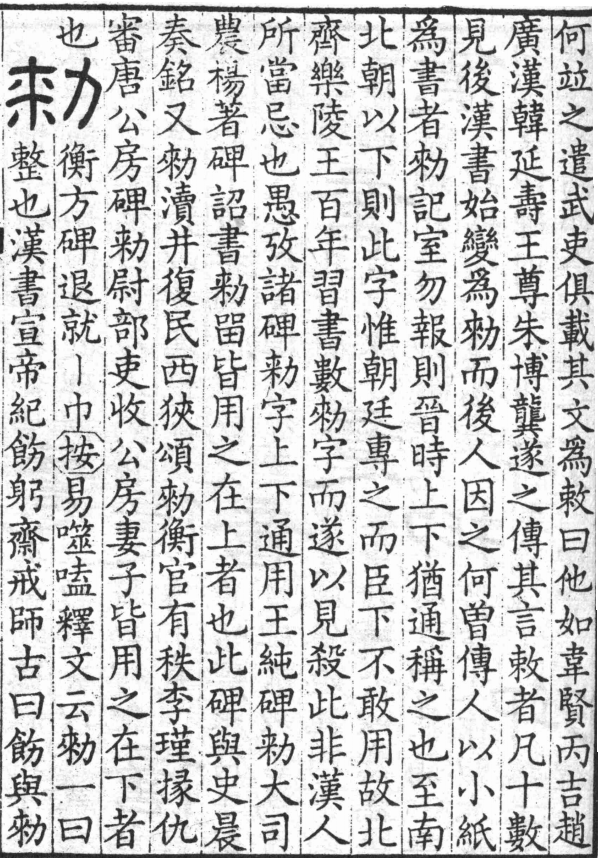 何竝之遣武吏俱載其文爲敕曰他如韋賢丙吉趙
廣漢韓延壽王尊朱博龔遂之傳其言敕者凡十數
見後漢書始變爲勑而後人因之何曽傳人以小紙
爲書者勑記室勿報則晉時上下猶通稱之也至南
北朝以下則此字惟朝廷專之而臣下不敢用故北
齊樂陵王百年習書數勑字而遂以見殺此非漢人
所當忌也愚攷諸碑勑字上下通用王純碑勑大司
農楊著碑詔書勑畱皆用之在上者也此碑與史晨
奏銘又勑瀆井復民西狹頌勑衡官有秩李瑾掾仇
審唐公房碑勑尉部吏收公房妻子皆用之在下者
也
勑 衡方碑退就丨巾按易噬嗑釋文云勑一曰
整也漢書宣帝紀飭躬齋戒師古曰飭與勑